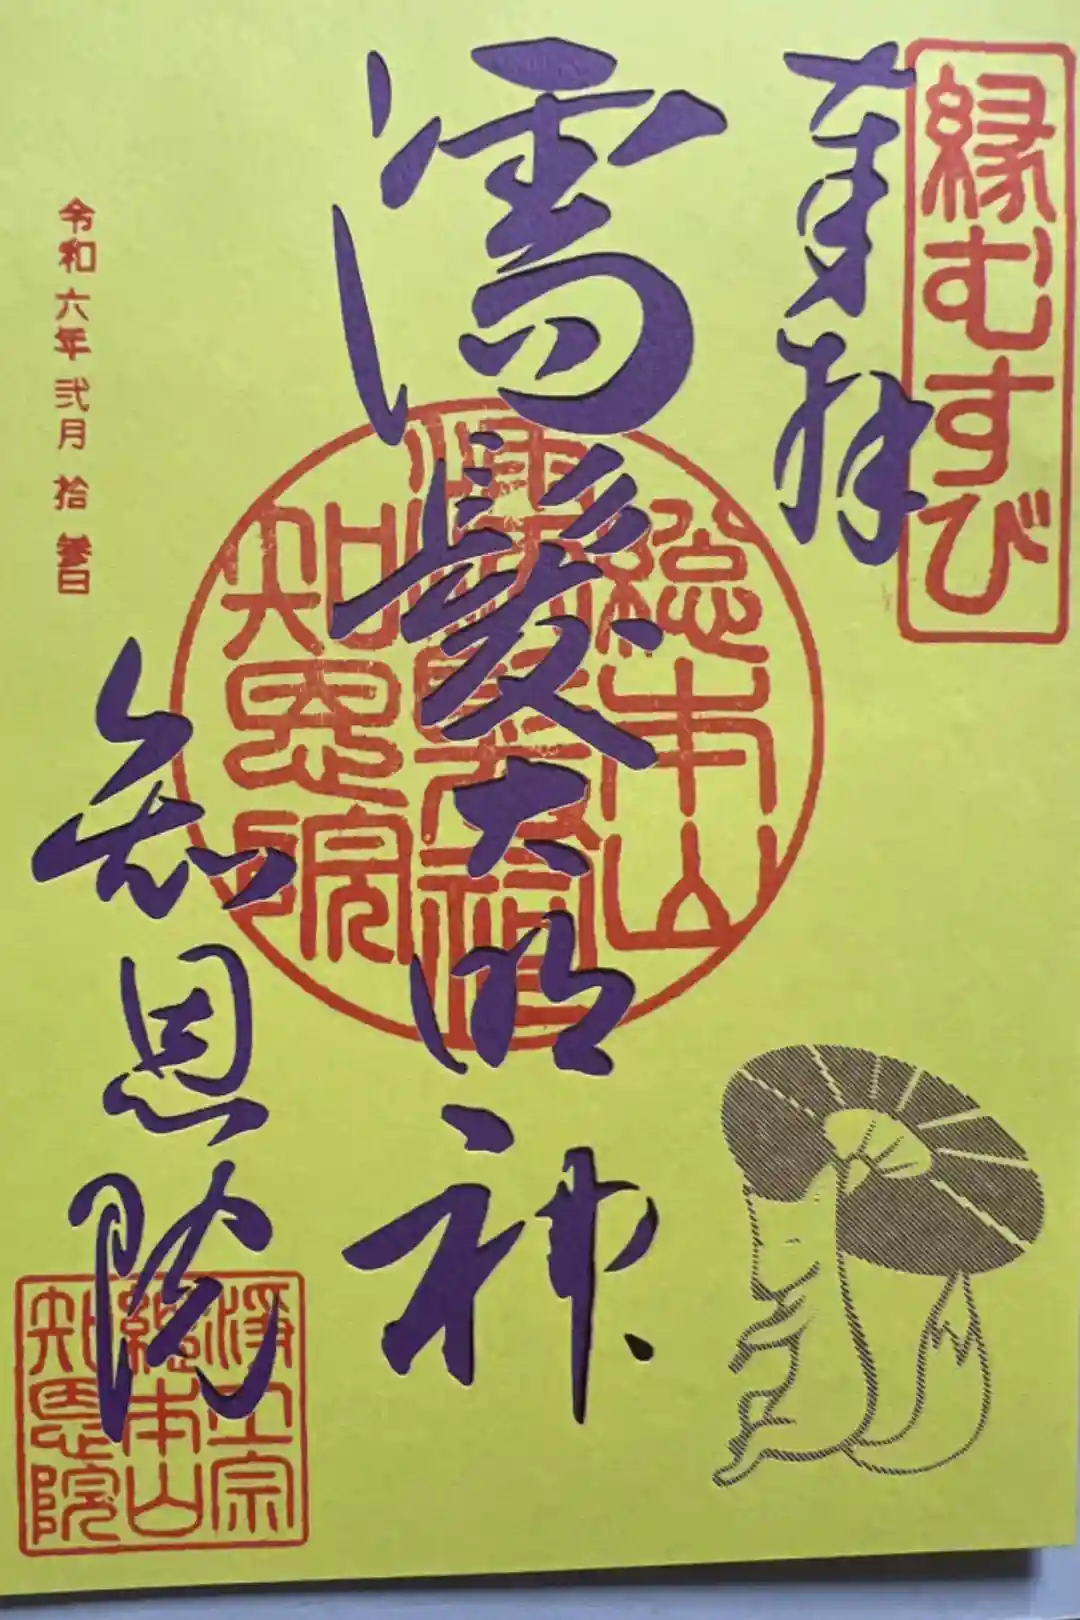 縁むすび
奉拝
濡髪大明神
総本山
知恩院
令和六年弐月拾参日
知恩院
浄土宗
総本山
知恩院